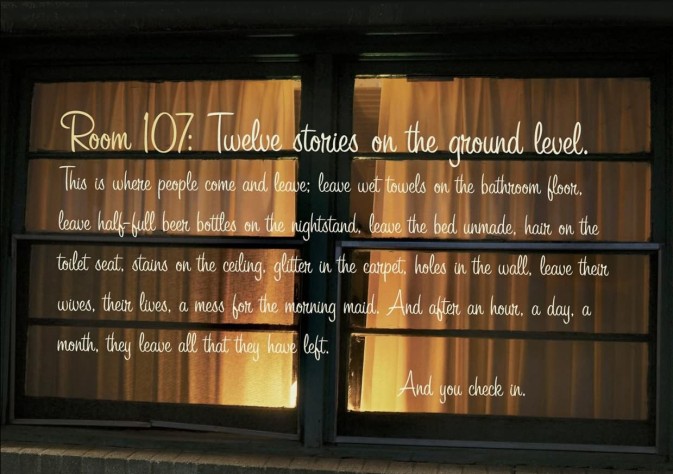 Room 107: Twelve stories on the ground level.
This is where people come and leave; leave wet towels on the bathroom floor,
leave half-full beer bottles on the nightstand, leave the bed unmade, hair on the
toilet seat, stains on the ceiling, glitter in the carpet, holes in the wall, leave their
wives, their lives, a mess for the morning maid. And after an hour, a day, a
month, they leave all that they have left.
And you check in.